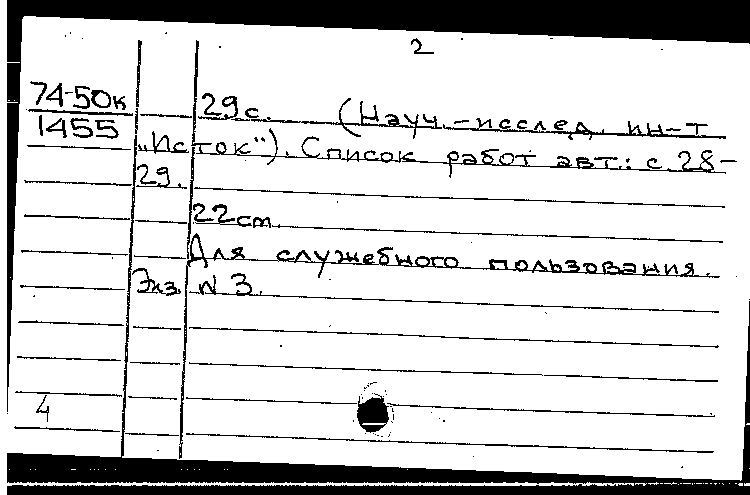 2
74-50к
1455
29с. (Науч.-исслед. ин-т
„Исток"). Список работ авт.: с. 28-
29.
22см.
Для служебного пользования.
Экз. N 3.
4